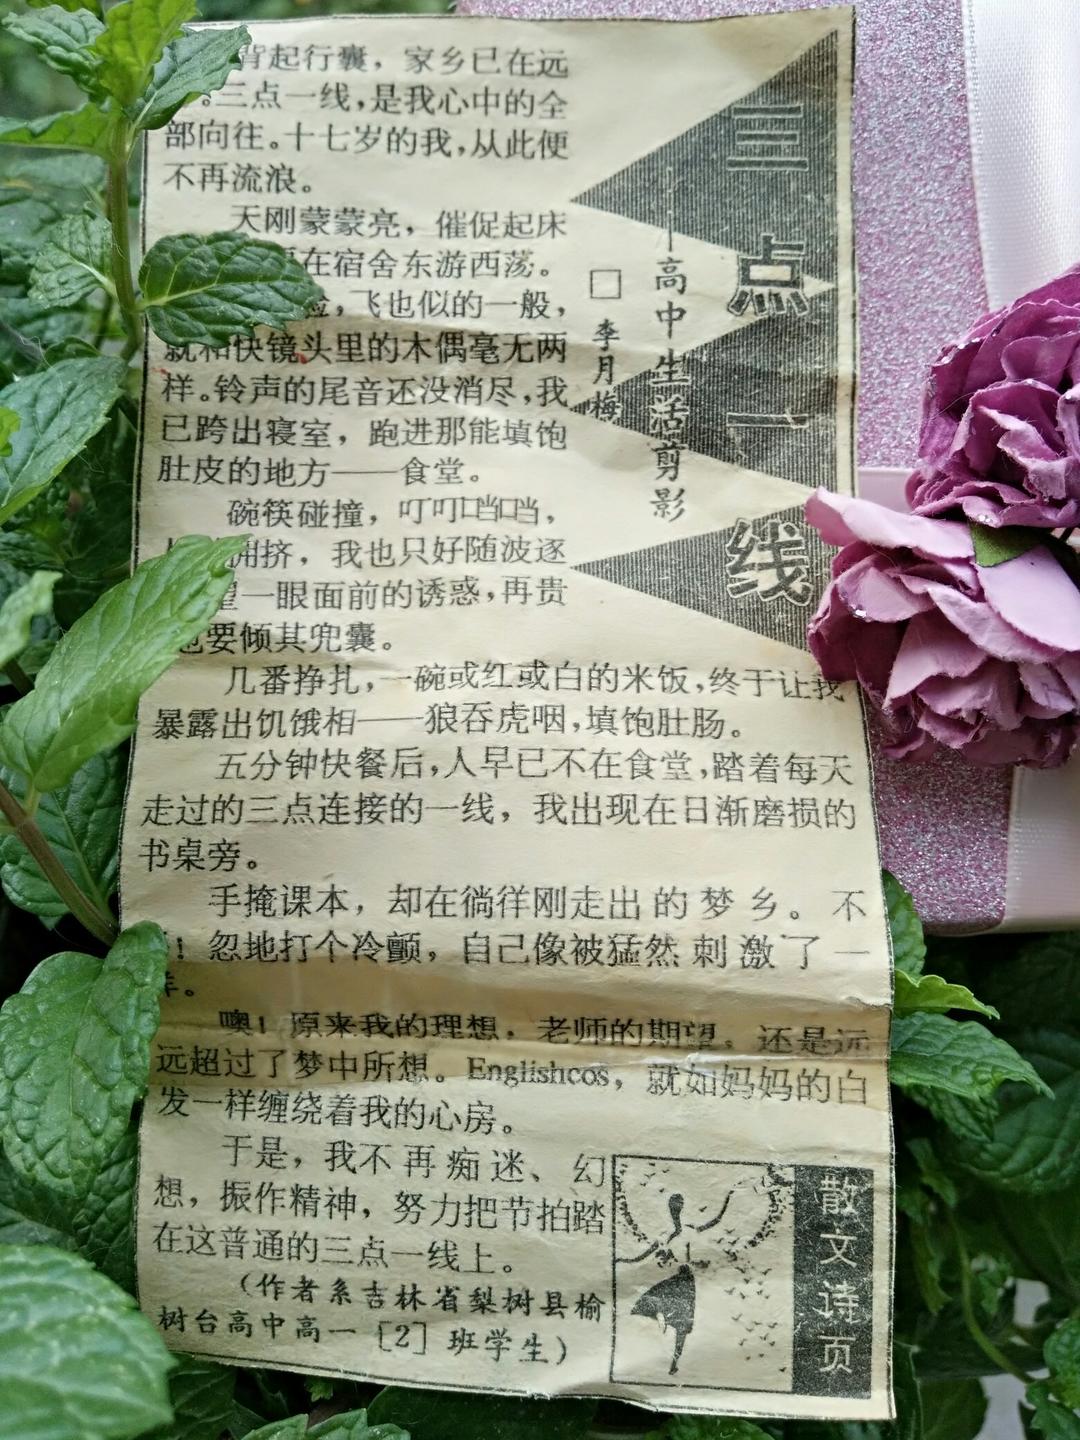 三点一线
——高中生活剪影
□ 李月梅
背起行囊，家乡已在远
。三点一线，是我心中的全
部向往。十七岁的我，从此便
不再流浪。
天刚蒙蒙亮，催促起床
在宿舍东游西荡。
，飞也似的一般，
就和快镜头里的木偶毫无两
样。铃声的尾音还没消尽，我
已跨出寝室，跑进那能填饱
肚皮的地方——食堂。
碗筷碰撞，叮叮当当，
拥挤，我也只好随波逐
望一眼面前的诱惑，再贵
也要倾其兜囊。
几番挣扎，一碗或红或白的米饭，终于让我
暴露出饥饿相——狼吞虎咽，填饱肚肠。
五分钟快餐后，人早已不在食堂，踏着每天
走过的三点连接的一线，我出现在日渐磨损的
书桌旁。
手掩课本，却在徜徉刚走出的梦乡。不
！忽地打个冷颤，自己像被猛然刺激了一
样。
噢！原来我的理想，老师的期望，还是远
远超过了梦中所想。Englishcos，就如妈妈的白
发一样缠绕着我的心房。
于是，我不再痴迷、幻
想，振作精神，努力把节拍踏
在这普通的三点一线上。
（作者系吉林省梨树县榆
树台高中高一［2］班学生）
散文诗页